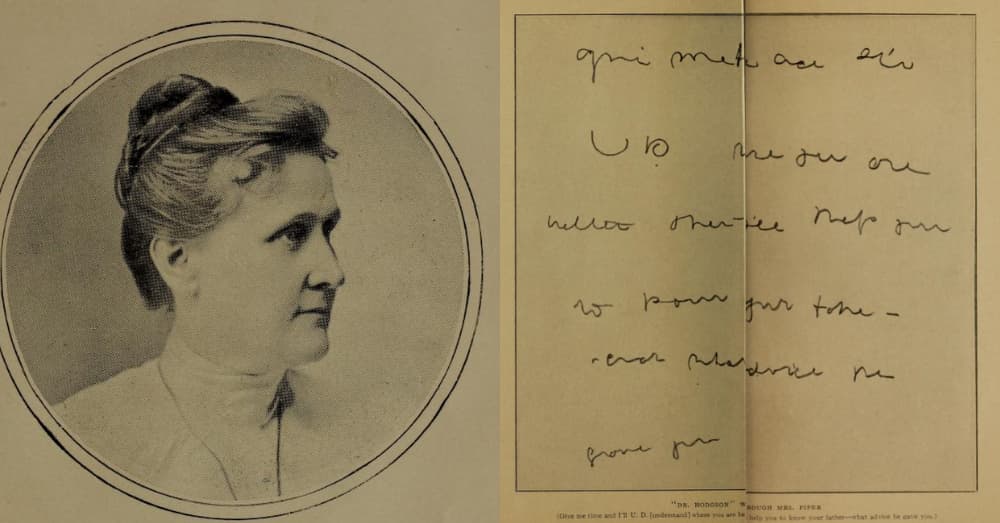 give me
U D where you are
help you
to know your father -
and what advice he
gave you
"DR. HODGSON" ROUGH MRS. PIPER
(Give me time and I'll U. D. [understand] where you are help you to know your father—what advice he gave you.)